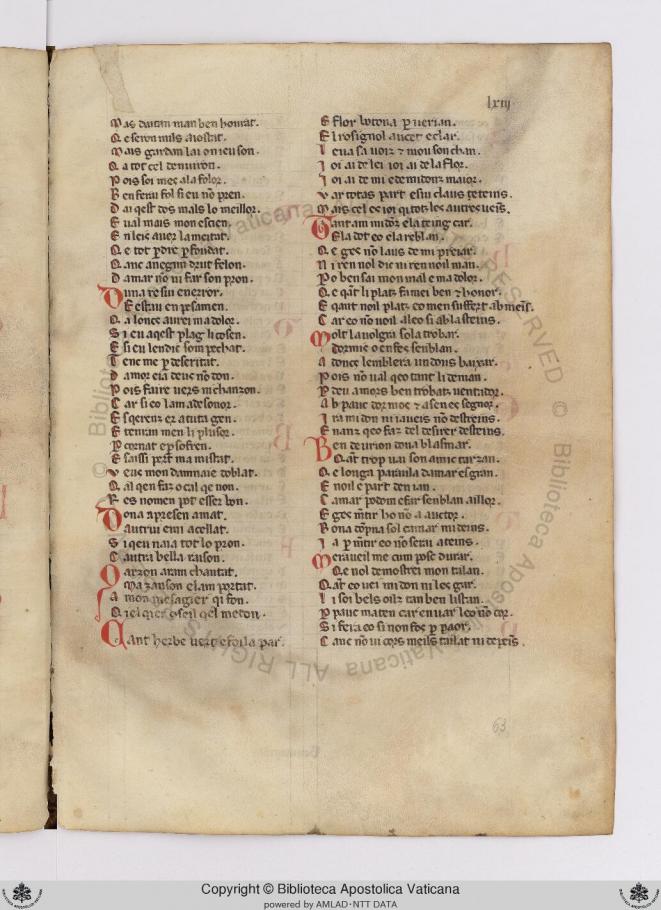 lxiij
Mas dautan man ben honrat.
Q e seron mils aiostat.
M ais gardan lai on ieu son.
Q a tot cel denuiron.
P ois soi mes a la folor.
B en serai fol si eu nõ pren.
D aiqest dos mals lo meillor.
E ual mais mon escien.
E n leis auer la meitat.
Q e tot pdre p fondat.
Q anc anegun drut felon.
D amar nõ ui far son pron.
D una re sui en error.
E estau en pesamen.
Q a lonc aurei ma dolor.
S i eu aqest plag li cosen.
E si eu lendic son pechat.
T enc me p deseritat.
D amor e ia deus nõ don.
P ois faire uers ni chanzon.
C ar si eo lam a desonor.
E sqerns er a tuta gen.
E tenran men li plusor.
P cornat e p sofren.
E saissi pert ma mistat.
V enc mon damnaie doblat.
Q al qen faz o cal qe non.
R es no men pot esser bon.
D ona a presen amat.
autrui e mi a cellat.
S i qeu naia tot lo pron.
C autra bella raison.
G arzon aram chantat.
Ma zanson e lam portat.
A mon mesagier qi fon.
Q i el qier cõseil qel me don.
C ant herbe uert e foila par.
E flor botona p uerian.
E l rosignol autet e clar.
L eua sa uoiz e mou son chan.
I oi ai de lei ioi ai de la flor.
I oi ai de mi e de midonz maior.
V ar totas part esui claus e ceins.
M ais cel es ioi qi tot los autres ueis.
T ant am midõz e la teing car.
E la dot eo e la reblan.
Q e ges nõ laus de mi preiar.
N i ren nol dic ni ren noil man.
P o ben sai mon mal e ma dolor.
Q e qãt li plat fa mei ben e honor.
E qant noil plat eo men suffert ab meis.
C ar eo nõ uoil al eo si abla steins.
M olt la uolgra sola trobar.
dormis o en fes senblan.
A donc lemblera un dous baisar.
P ois nõ ual qeo tant li deman.
P deu amors ben trobat uentador.
A b pauc dormoc e asen es segnor.
I ra midon ni iauers nõ destreins.
E nanz qeo faz del desirer desteins.
B en deurion dona blasmar.
Q ãt trop uai son amic tarzan.
Q e longa paraula damar es gran.
E noil e part den ian.
C amar podom e far senblan aillor.
E ges mẽtir ho nõ a auctor.
B ona dõpna sol camar mi deins.
I a p mẽtir eo nõ serai ateins.
M eraueil me cum pose durar.
Q e nol demostrei mon talan.
Q ãt eo uei midon ni les gar.
L i soi bels oilz tan ben listan.
P pauc maten car en uar leo nõ cor.
S i fera eo si non fos p paor.
C anc nõ ui cors meils taillat ni depeis.
63
Copyright © Biblioteca Apostolica Vaticana
powered by AMLAD·NTT DATA